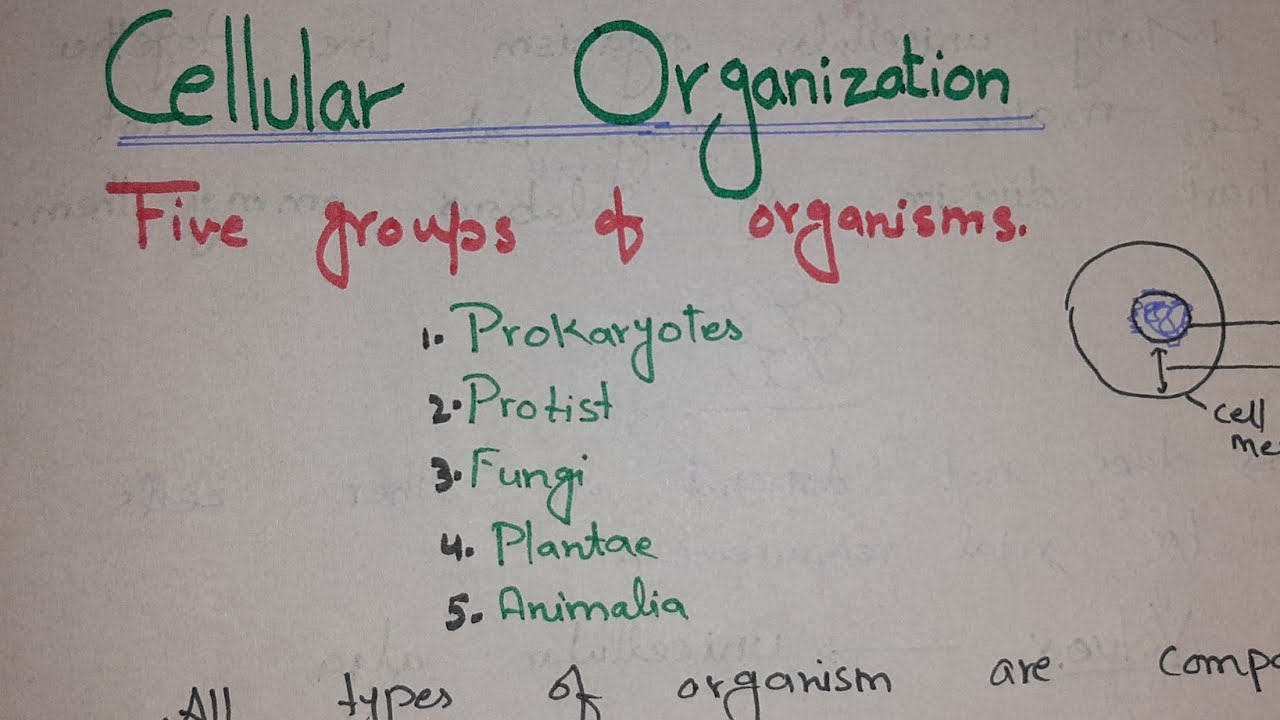 Cellular Organization
Five groups of organisms.
1. Prokaryotes
2. Protist
3. Fungi
4. Plantae
5. Animalia
cell
All types of organism are